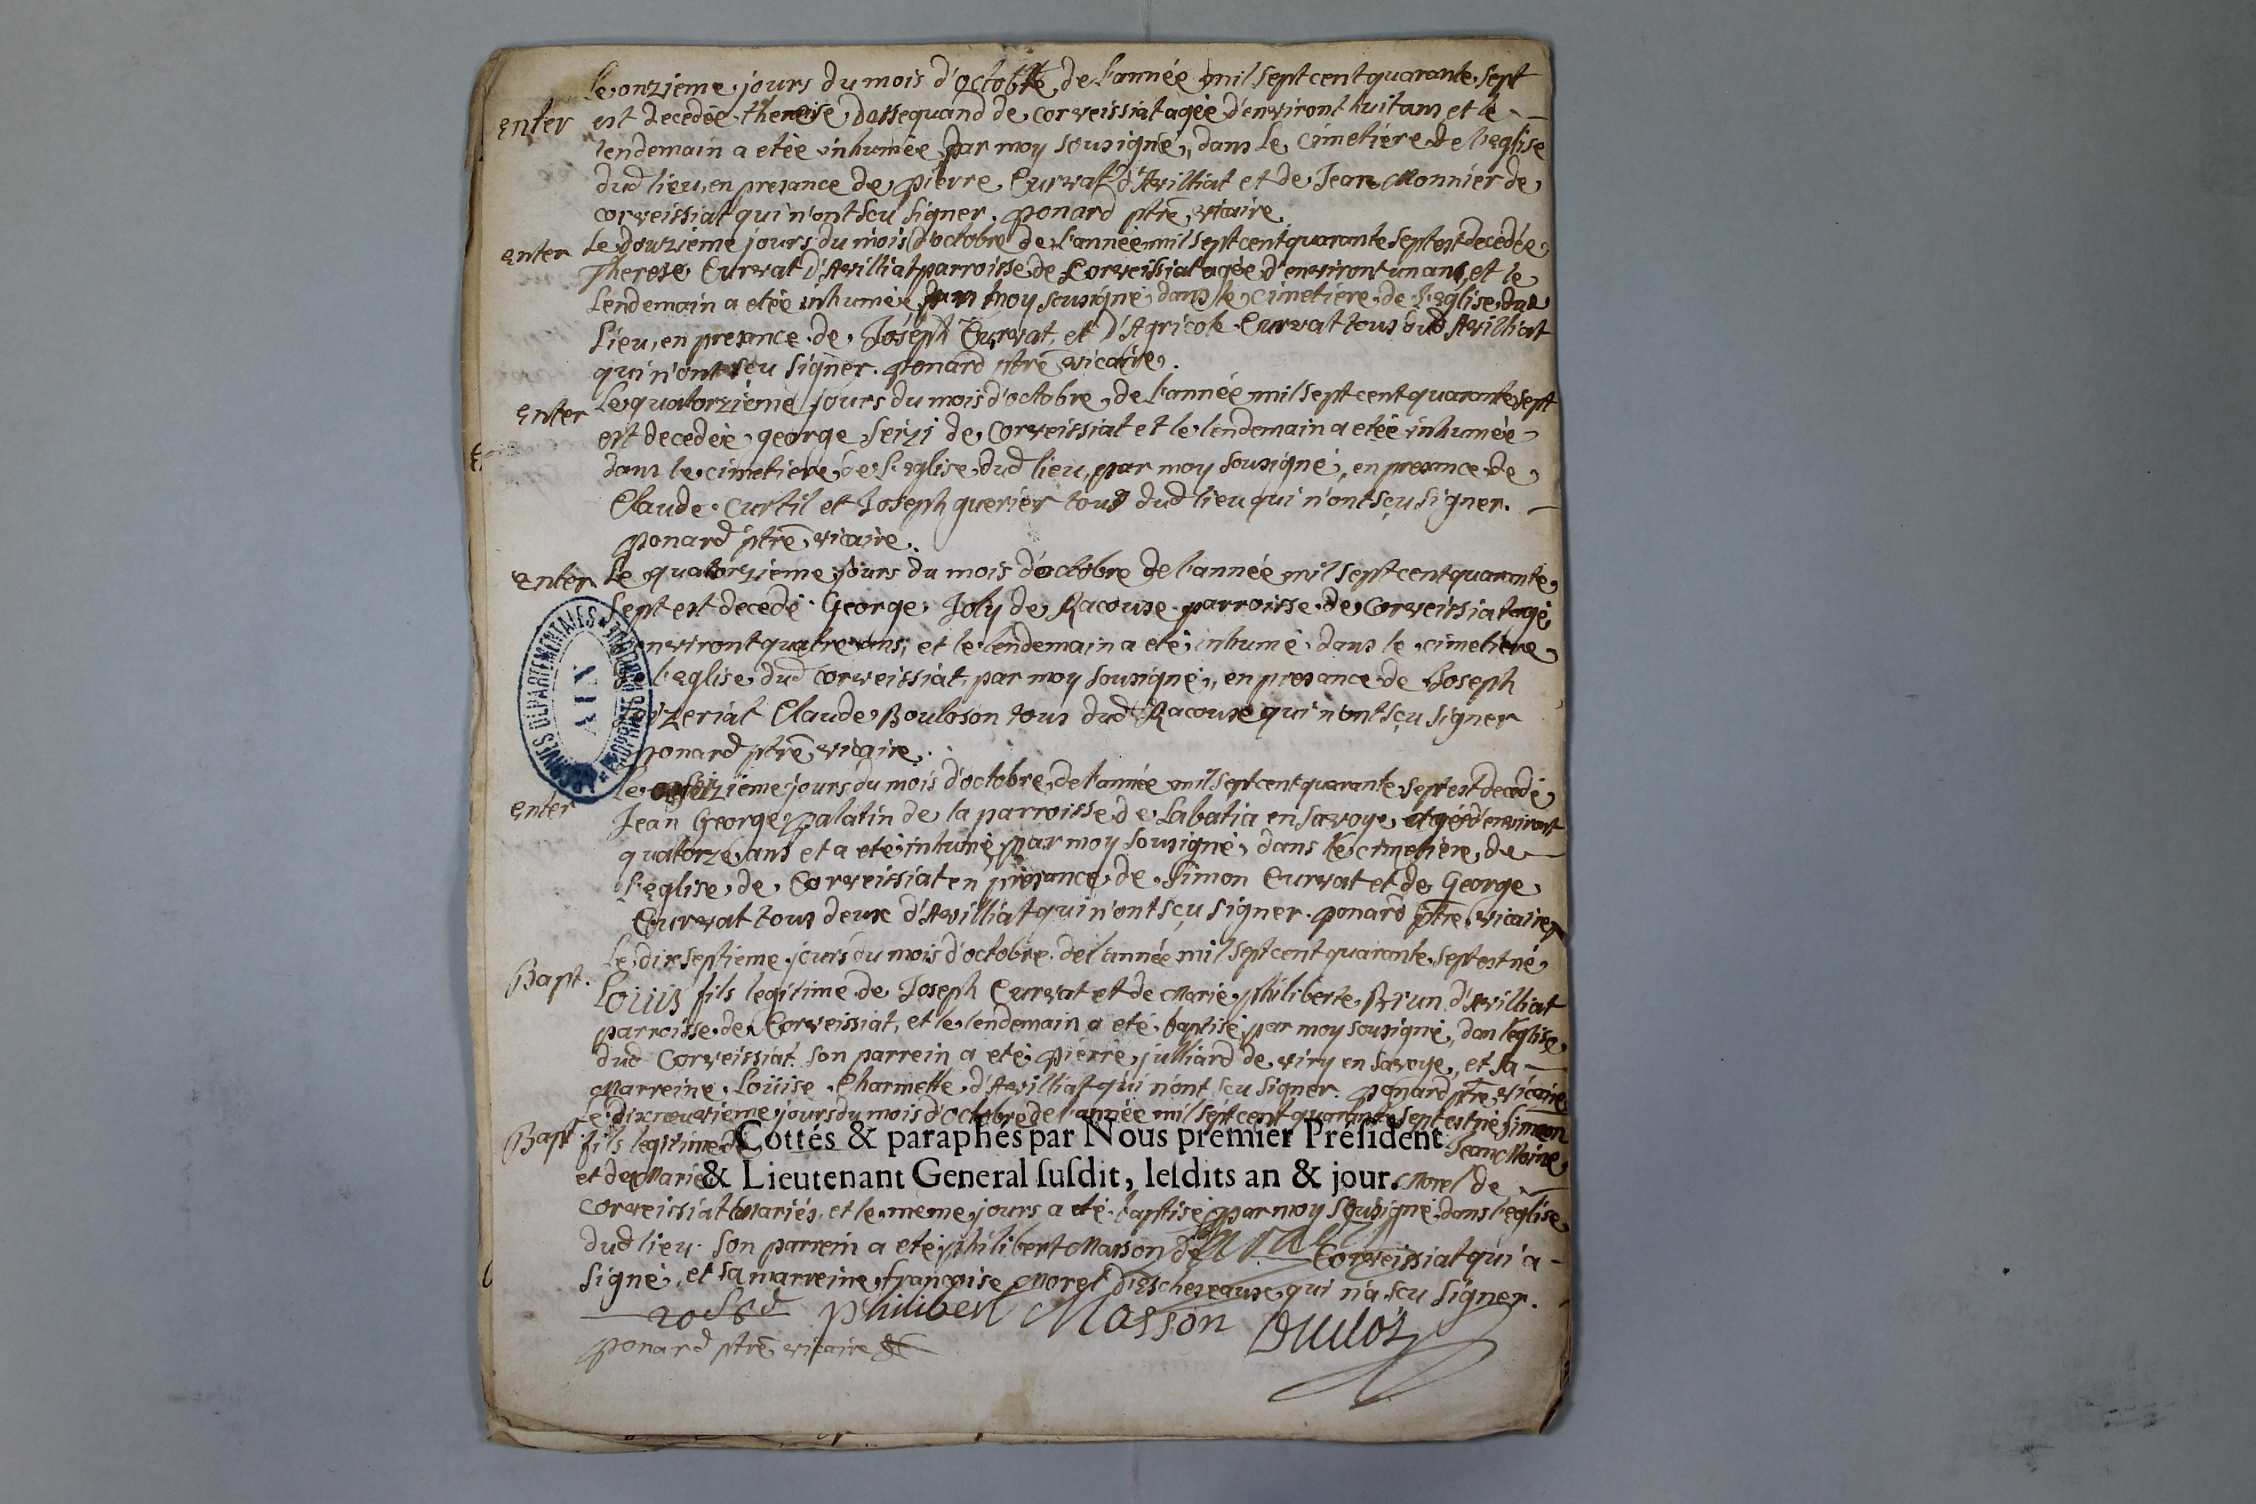 Le onzieme jours du mois d'octobre de l'année mil sept cent quarante sept
enter est decedée therese dessequand de corveissiat agée d'environt huit ans et le
lendemain a etée inhumée par moy sousigné, dans le cimetiere de l'eglise
dud lieu, en presance de pierre Curvat d'Avilliat et de Jean Monnier de
corveissiat qui n'ont sçu signer. ponard ptre vicaire.
enter Le douzieme jours du mois d'octobre de l'année mil sept cent quarante sept est decedée
Therese Curvat d'Avilliat parroisse de Corveissiat agée d'environt un ans, et le
Lendemain a etée inhumée par moy sousigné dans le cimetiere de l'eglise dud
Lieu, en presance de Joseph Curvat, et d'Agricole Curvat tous dud Avilliat
qui n'ont sçu signer. ponard ptre vicaire.
enter Le quatorzieme jours du mois d'octobre de l'année mil sept cent quarante sept
est decedée george seizi de Corveissiat et le lendemain a etée inhumée
dans le cimetiere de l'eglise dud lieu, par moy sousigné, en presance de
Claude Curtil et Joseph querier tous dud lieu qui n'ont sçu signer.
ponard ptre vicaire.
enter Le quatorzieme jours du mois d'octobre de l'année mil sept cent quarante
sept est decedé George Joly de Racouse parroisse de Corveissiat agé
environt quatre ans, et le lendemain a eté inhumé dans le cimetiere
de l'eglise dud Corveissiat, par moy sousigné, en presance de Joseph
Claude Bouloson tous dud Racouse qui n'ont sçu signer
ponard ptre vicaire.
ARCHIVES DEPARTEMENTALES PROPRIETE PUBLIQUE
AIN
Le seizieme jours du mois d'octobre de l'année mil sept cent quarante sept est decedé
enter Jean George palatin de la parroisse de Labatia en savoye, agé d'environt
quatorze ans et a eté inhumé par moy sousigné, dans le cimetiere de
l'eglise de Corveissiat en presance de Simon Curvat et de George
Curvat tous deux d'Avilliat qui n'ont sçu signer. ponard ptre vicaire
Le dix septieme jours du mois d'octobre de l'année mil sept cent quarante sept est né
Bapt. Loüis fils legitime de Joseph Curvat et de Marie philiberte brun d'Avilliat
parroisse de Corveissiat, et le lendemain a eté baptisé par moy sousigné, dan l'eglise
dud Corveissiat. son parrein a eté pierre julliard de viry en savoye, et sa
Marreine Loüise Charmette d'Avilliat qui n'ont sçu signer. ponard ptre vicaire
Le dixneuvieme jours du mois d'octobre de l'année mil sept cent quarante sept est né simeon
Bapt. fils legitime de Jean Moine
Cottés & paraphés par Nous premier Préſident
et de Marie Morel de
& Lieutenant General ſuſdit, leſdits an & jour.
Corveissiat Mariés, et le meme jours a eté baptisé par moy sousigné dans l'eglise
dud lieu. son parrein a eté philibert Masson de Corveissiat qui a
signé, et sa marreine françoise Morel d'Escheseaux qui n'a sçu signer.
philibert Masson
ponard ptre vicaire